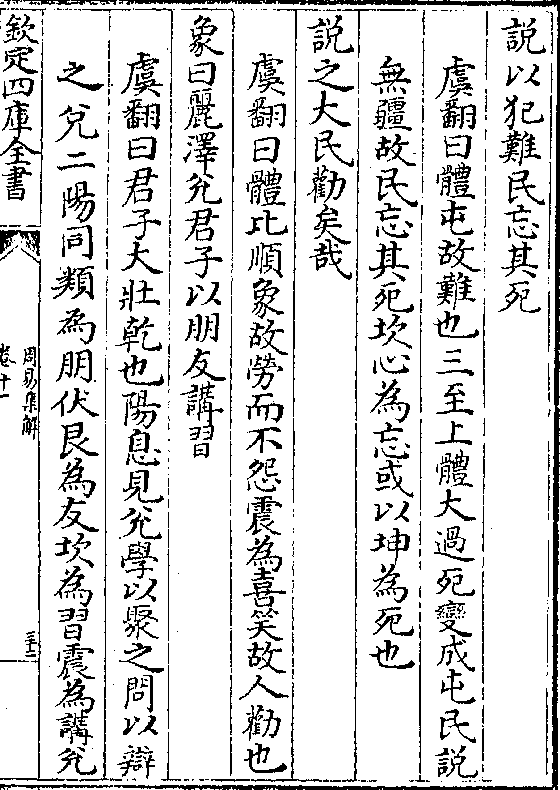 説以犯難民忘其死
虞翻曰體屯故難也三至上體大過死變成屯民説
無疆故民忘其死坎心為忘或以坤為死也
説之大民勸矣哉
虞翻曰體比順象故勞而不怨震為喜笑故人勸也
象曰麗澤兊君子以朋友講習
虞翻曰君子大壯乾也陽息見兊學以聚之問以辯
之兊二陽同類為朋伏艮為友坎為習震為講兊
欽定四庫全書
周易集解
卷十一